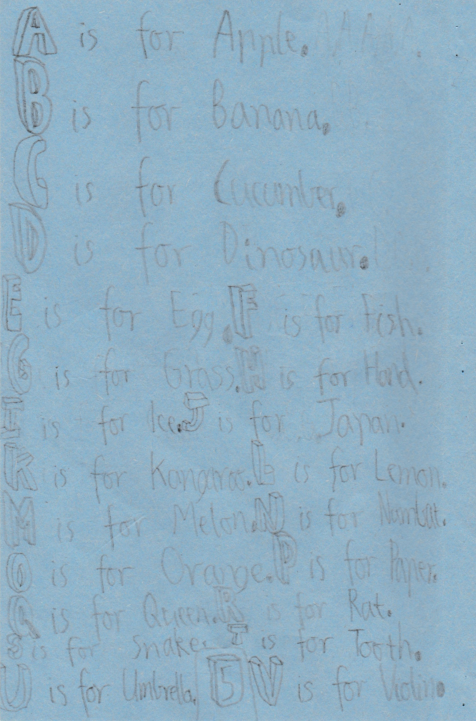 A is for Apple.
B is for Banana.
C is for Cucumber.
D is for Dinosaur.
E is for Egg. F is for Fish.
G is for Grass. H is for Hand.
I is for Ice. J is for Japan.
K is for Kangaroo. L is for Lemon.
M is for Melon. N is for Numbat.
O is for Orange. P is for Paper.
Q is for Queen. R is for Rat.
S is for Snake. T is for Tooth.
U is for Umbrella. 5 V is for Violin.